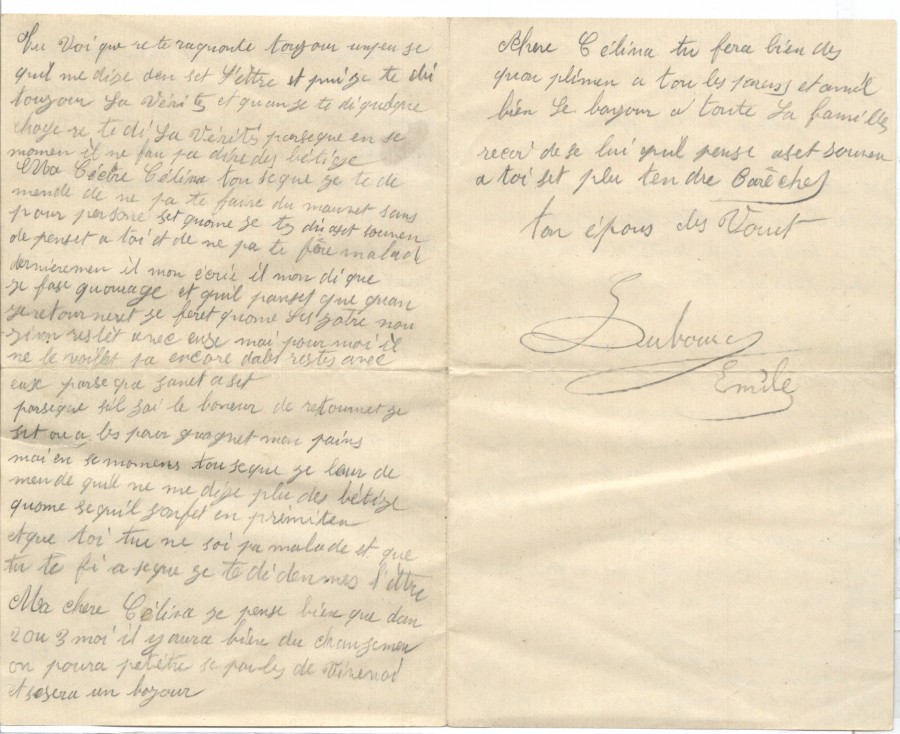 Tu Voi que re te raquonte toujour un peu se
quil me dize den set l'ettre et puize te di
toujour La Vérités et quan se te di quelque
choze re te di La Vérités parseque en se
momen il ne fau pa dire des bêtize
Ma Chère Célina tou se que ze te de
mende de ne pa te faire du mauvet sans
pour persone set quome ze te di aset souven
de penset a toi et de ne pa te fère malad
dernieremen il mon écrie il mon di que
ze fase quourage et quil panset que quan
ze retourneret ze feret quome les zotre nou
zion restèt avec euse mai pour moi il
ne le voilet pa encore dabi restes avec
eux parse que sanet aset
parseque sil zai le boneur de retournet ze
set ou a les pour guagnet mon pains
mai en se momens tou seque ze leur de
mende quil ne me dize plu des bêtize
quome sequil zonfet en primiten
et que toi tu ne soi pa malade et que
tu te fi a seque ze te di den mes l'ettre
Ma chere Célina ze pense bien que dan
2 ou 3 moi il y aura bien du chansemen
on poura petétre se parles de vive
et sesera un bozour
Chere Célina tu fera bien des
quon plimen a tou les parens et amil
bien le bozour a toute La familles
recoi de se lui quil pense aset souven
a toi set plu tendre Carêches
ton épous des Vouet
Dubourg
Emile